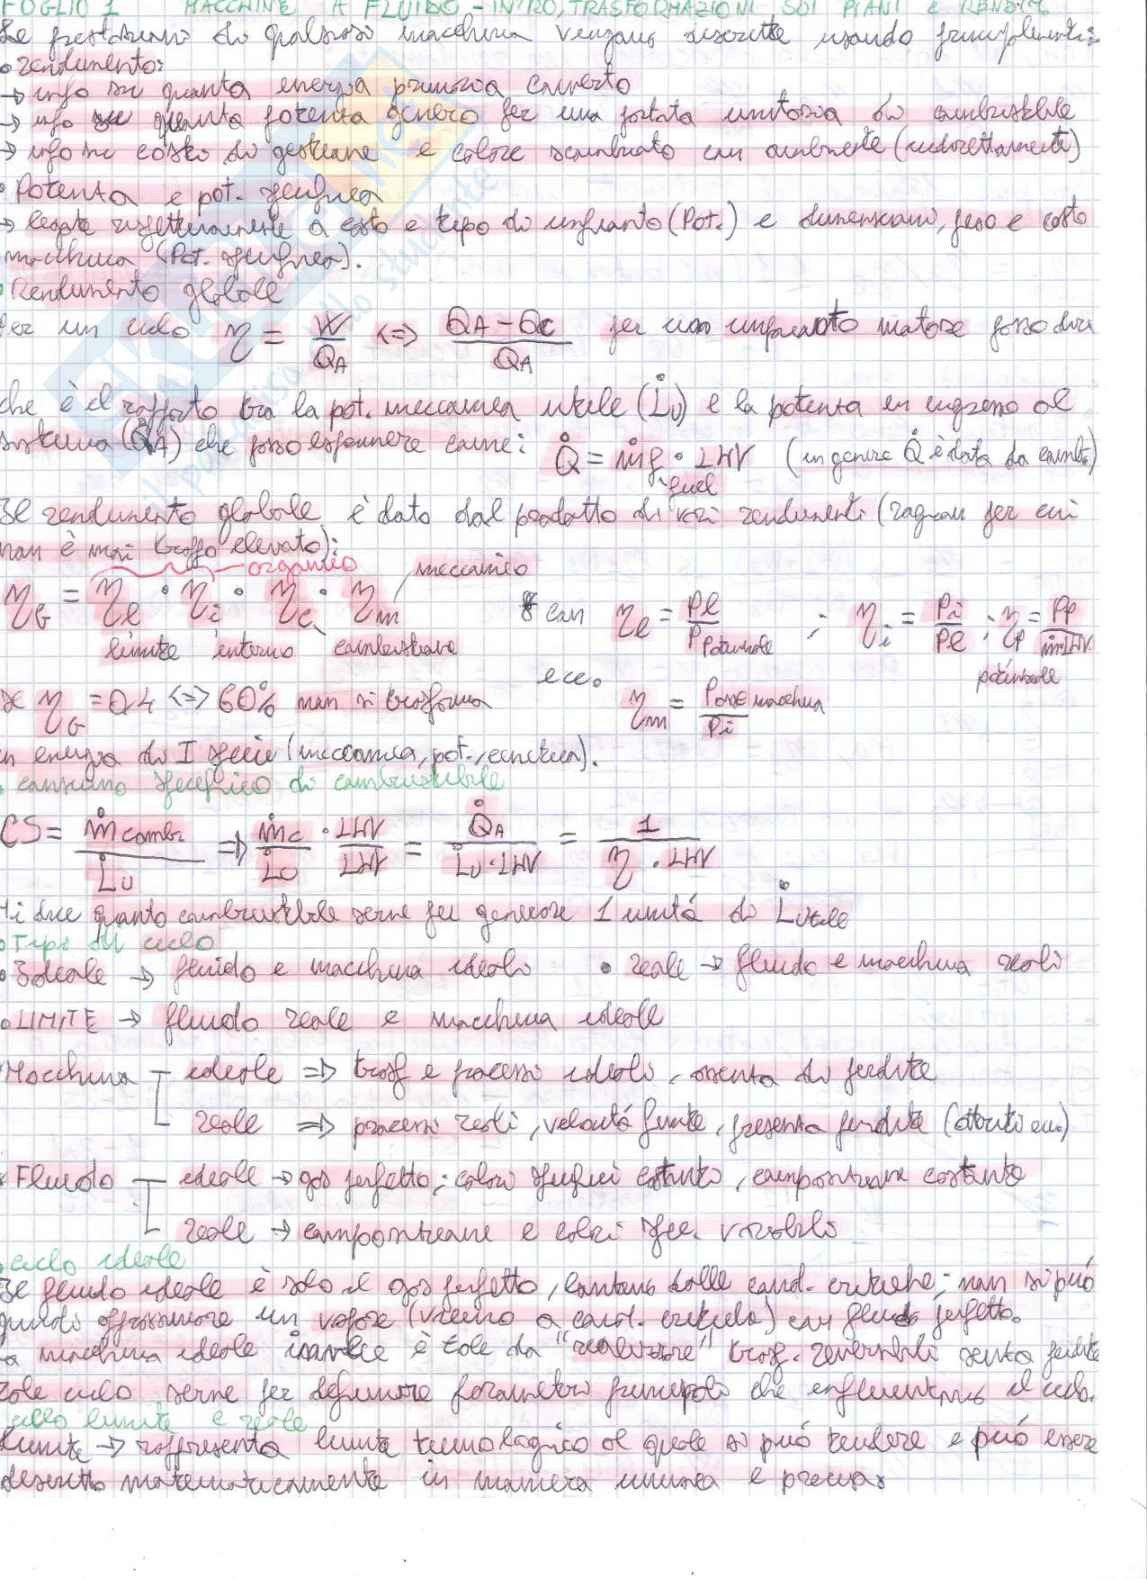 FOGLIO 1 MACCHINE A FLUIDO - INTRO, TRASFORMAZIONI SUI PIANI e RENDIM.
Le prestazioni di qualsiasi macchina vengono descritte usando principalmente:
• rendimento:
→ info su quanta energia primaria converto
→ info su quanta potenza genero per una portata unitaria di combustibile
→ info su costo di gestione e calore scambiato con ambiente (indirettamente)
• Potenza e pot. specifica
→ legate rispettivamente a costo e tipo di impianto (Pot.) e dimensioni, peso e costo
macchina (Pot. specifica).
• Rendimento globale
Per un ciclo η = W/QA <=> QA-QC/QA per un impianto motore posso dire
che è il rapporto tra la pot. meccanica utile (L̊U) e la potenza in ingresso al
sistema (Q̊A) che posso esprimere come: Q̊ = m̊f · LHV (in genere Q̊ è data da comb.)
fuel
Il rendimento globale è dato dal prodotto di vari rendimenti (ragion per cui
non è mai troppo elevato):
organico meccanico
ηG = ηl · ηi · ηc · ηm con ηl = Pl/Ppotenziale ; ηi = Pi/Pl ; ηp = Pp/ṁLHV
limite interno combustione potenziale
se ηG = 0,4 <=> 60% non si trasforma ecc. ηm = Passe macchina/Pi
in energia di I specie (meccanica, pot., cinetica).
• consumo specifico di combustibile
CS = m̊comb./L̊U => m̊c/L̊U · LHV/LHV = Q̊A/L̊U·LHV = 1/η·LHV
Mi dice quanto combustibile serve per generare 1 unitá di L̊utile
• Tipi di ciclo
• Ideale → fluido e macchina ideali • reale → fluido e macchina reali
• LIMITE → fluido reale e macchina ideale
Macchina ideale => trasf e processi ideali, assenza di perdite
reale => processi reali, velocitá finite, presenza perdite (attriti ecc.)
• Fluido ideale → gas perfetto; calori specifici costanti, composizione costante
reale → composizione e calori spec. variabili
• ciclo ideale
Il fluido ideale è solo il gas perfetto, lontano dalle cond. critiche; non si puó
quindi approssimare un vapore (vicino a cond. critiche) con fluido perfetto.
La macchina ideale invece è tale da "realizzare" trasf. reversibili senza perdite
Tale ciclo serve per definire parametri principali che influenzano il ciclo.
ciclo limite e reale
Limite → rappresenta limite tecnologico al quale si puó tendere e puó essere
descritto matematicamente in maniera univoca e precisa